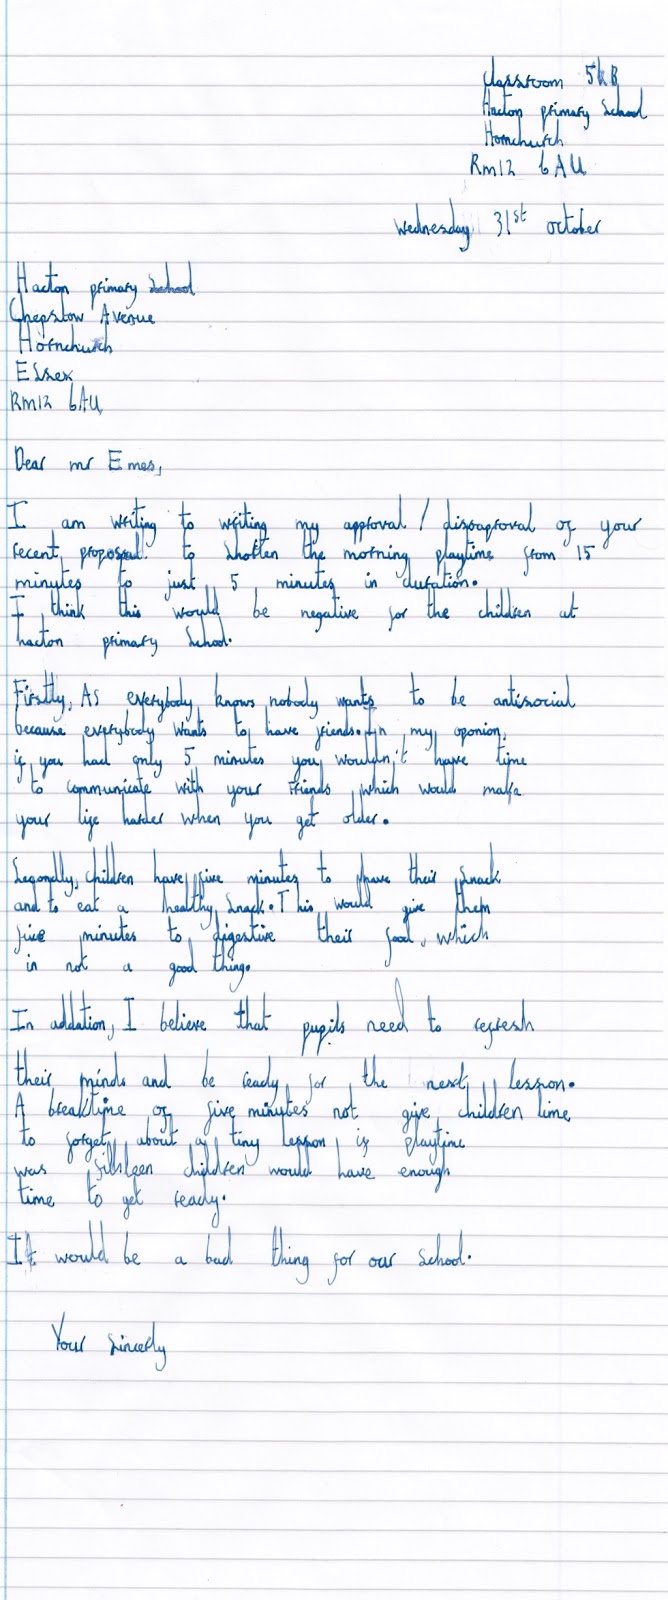 Classroom 5kB
Hacton primary School
Hornchurch
Rm12 6AU
Wednesday 31st october
Hacton primary School
Chepstow Avenue
Hornchurch
Essex
Rm12 6AU
Dear mr Emes,
I am writing to writing my approval / dissaproval of your
recent proposal. to shorten the morning playtime from 15
minutes to just 5 minutes in duration.
I think this would be negative for the children at
hacton primary School.
Firstly, As everybody knows nobody wants to be antisocial
because everybody wants to have friends. In my oponion,
if you had only 5 minutes you wouldn't have time
to communicate with your friends which would make
your life harder when you get older.
Segondly, children have five minutes to have their snack
and to eat a healthy snack. This would give them
five minutes to digestive their food, which
in not a good thing.
In addation, I believe that pupils need to refresh
their minds and be ready for the next lesson.
A breaktime of five minutes not give children time
to forget about a tiny lesson if playtime
was fithteen children would have enough
time to get ready.
It would be a bad thing for our school.
Your sincerly